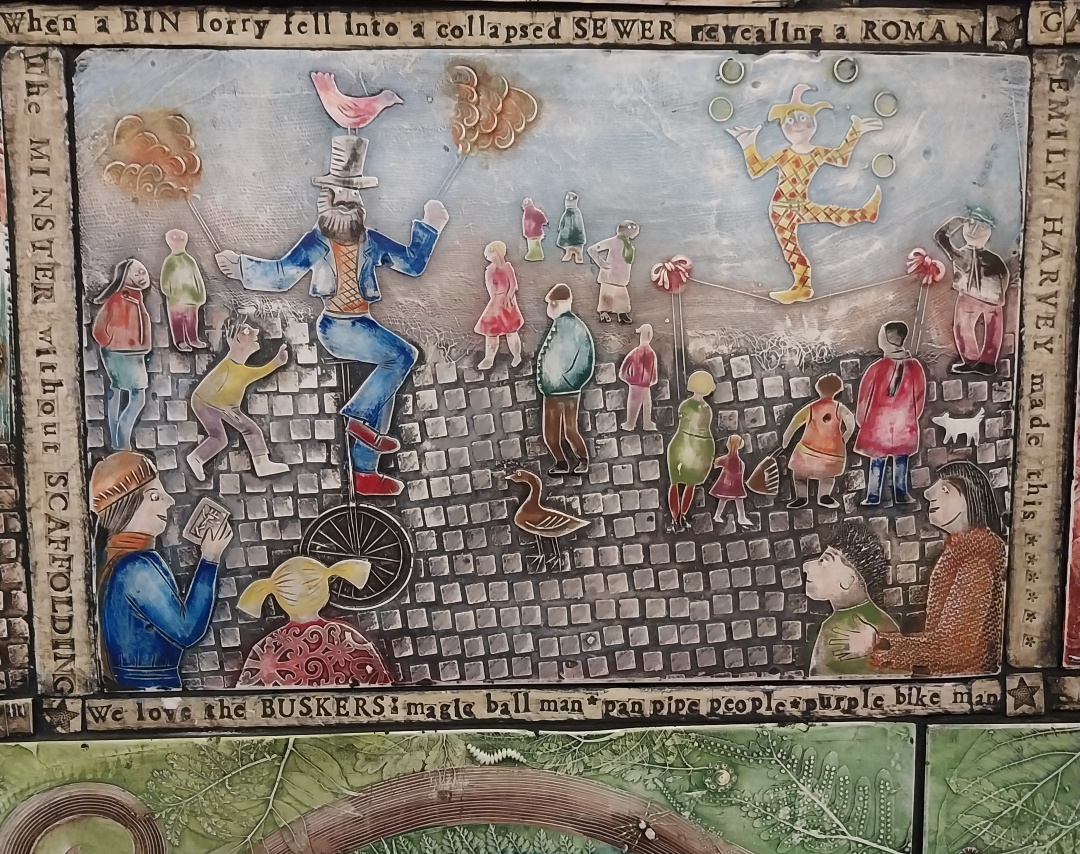 When a BIN lorry fell into a collapsed SEWER revealing a ROMAN
The MINSTER without SCAFFOLDING
EMILY HARVEY made this *****
We love the BUSKERS: magic ball man*pan pipe people*purple bike man